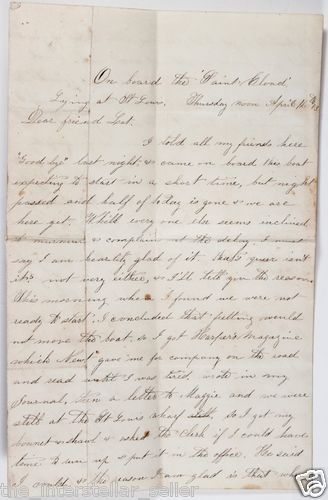 On board the "Saint Cloud"
Lying at St Louis, Thursday noon April 14th
Dear friend Lot.
I told all my friends here
"Good bye" last night & came on board this boat
expecting to start in a short time, but night
passed and half of today is gone & we are
here yet. While every one else seems inclined
to murmur & complain at the delay I must
say I am heartily glad of it. queer isn't
it? not very either, so I'll tell you the reason.
This morning when I found we were not
ready to start I concluded that fretting would
not move the boat. so I got Harper's Magazine
which gave me for company on the road
and read until I was tired, wrote in my
Journal, a letter to Maggie and we were
still at the St Louis wharf so I got my
bonnet & shawl & asked the Clerk if I could have
time to run up & put it in the office. He said
I could & the reason I am glad is that when
© the_interstellar_seller